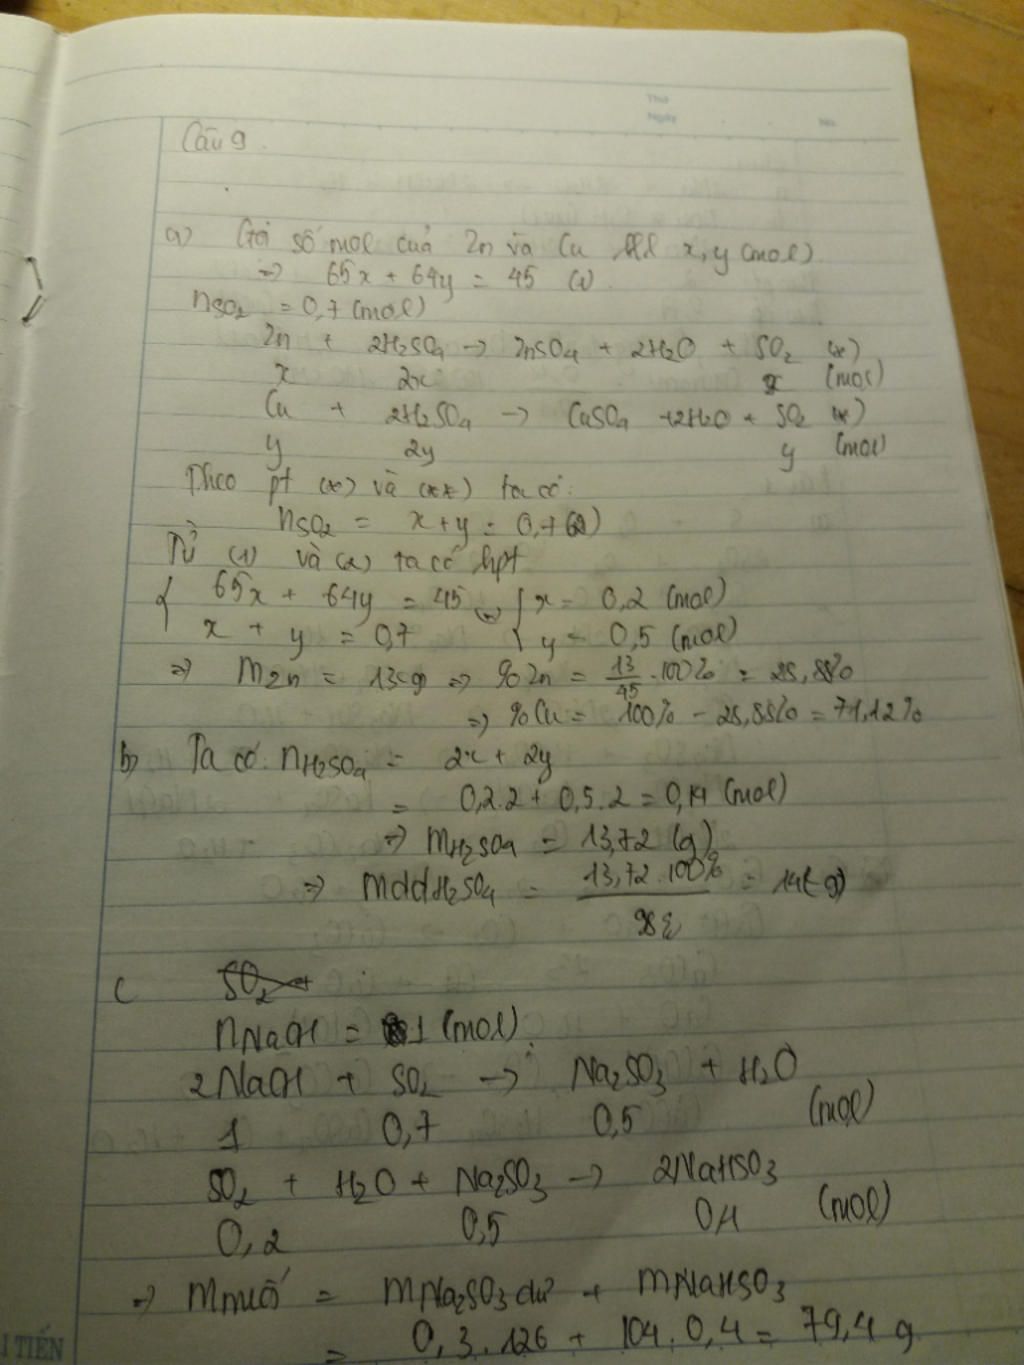 Thứ
Ngày
No.
Câu 9.
a) Gọi số mol của Zn và Cu lll x, y (mol).
=> 65x + 64y = 45 (1).
nSO2 = 0,7 (mol)
Zn + 2H2SO4 -> ZnSO4 + 2H2O + SO2 (*)
x 2x x (mol)
Cu + 2H2SO4 -> CuSO4 + 2H2O + SO2 (*)
y 2y y (mol)
Theo pt (*) và (**) ta có:
nSO2 = x + y = 0,7 (2)
Từ (1) và (2) ta có hpt
{ 65x + 64y = 45 <=> { x = 0,2 (mol)
x + y = 0,7 y = 0,5 (mol)
=> mZn = 13(g) => %Zn = 13/45 . 100% = 28,88%
=> %Cu = 100% - 28,88% = 71,12%
b) Ta có: nH2SO4 = 2x + 2y
= 0,2.2 + 0,5.2 = 0,14 (mol)
=> mH2SO4 = 13,72 (g)
=> mddH2SO4 = 13,72.100% / 98% = 14(g)
c SO2 +
nNaOH = 1 (mol).
2NaOH + SO2 -> Na2SO3 + H2O
1 0,7 0,5 (mol)
SO2 + H2O + Na2SO3 -> 2NaHSO3
0,2 0,5 0,4 (mol)
=> mmuối = mNa2SO3 dư + mNaHSO3
= 0,3.126 + 104.0,4 = 79,4 g
TIẾN